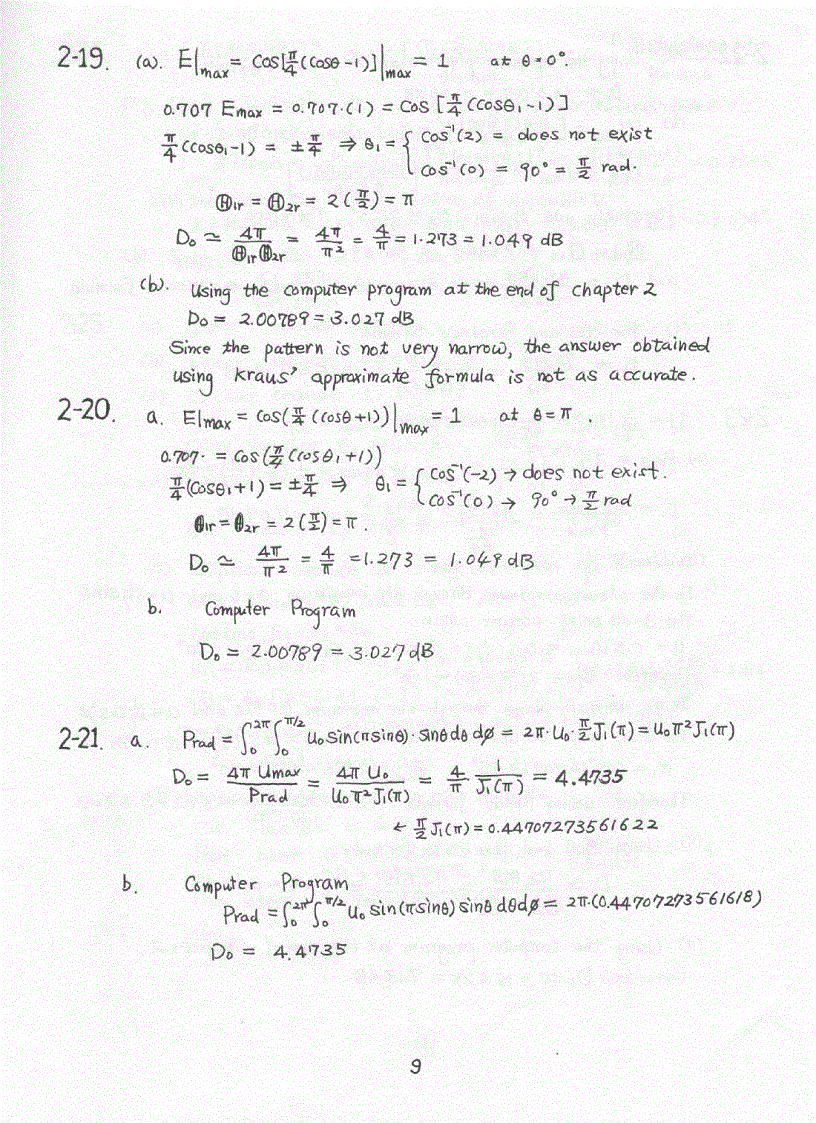 2-19. (a). E|max = cos[π/4(cosθ-1)]|max = 1 at θ=0°.
0.707 Emax = 0.707·(1) = cos[π/4(cosθ₁-1)]
π/4(cosθ₁-1) = ±π/4 ⇒ θ₁ = { cos⁻¹(2) = does not exist
cos⁻¹(0) = 90° = π/2 rad.
Θ1r = Θ2r = 2(π/2) = π
D₀ ≃ 4π/Θ1rΘ2r = 4π/π² = 4/π = 1.273 = 1.049 dB
(b). Using the computer program at the end of chapter 2
D₀ = 2.00789 = 3.027 dB
Since the pattern is not very narrow, the answer obtained
using Kraus' approximate formula is not as accurate.
2-20. a. E|max = cos(π/4(cosθ+1))|max = 1 at θ=π.
0.707· = cos(π/4(cosθ₁+1))
π/4(cosθ₁+1) = ±π/4 ⇒ θ₁ = { cos⁻¹(-2) → does not exist.
cos⁻¹(0) → 90° → π/2 rad
Θ1r = Θ2r = 2(π/2) = π.
D₀ ≃ 4π/π² = 4/π = 1.273 = 1.049 dB
b. Computer Program
D₀ = 2.00789 = 3.027 dB
2-21. a. Prad = ∫₀^2π ∫₀^π/2 U₀ sin(π sinθ)·sinθ dθ dø = 2π·U₀·π/2 J₁(π) = U₀π² J₁(π)
D₀ = 4π Umax/Prad = 4π U₀/U₀π²J₁(π) = 4/π · 1/J₁(π) = 4.4735
← π/2 J₁(π) = 0.44707273561622
b. Computer Program
Prad = ∫₀^2π ∫₀^π/2 U₀ sin(π sinθ) sinθ dθdø = 2π·(0.44707273561618)
D₀ = 4.4735
9